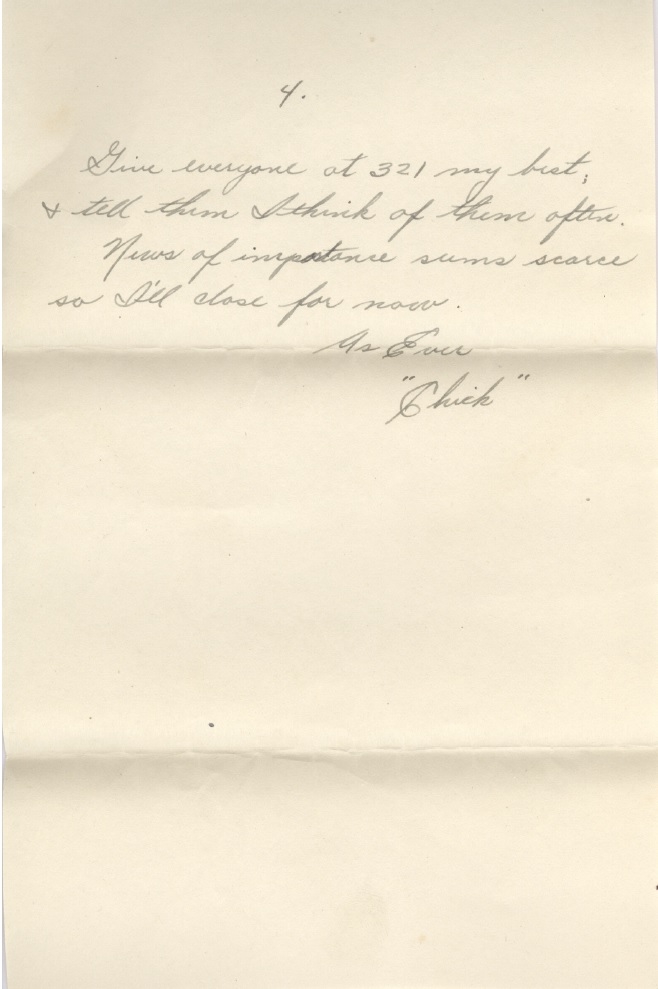 4.
Give everyone at 321 my best;
& tell them I think of them often.
News of importance seems scarce
so I'll close for now.
As Ever
"Chick"